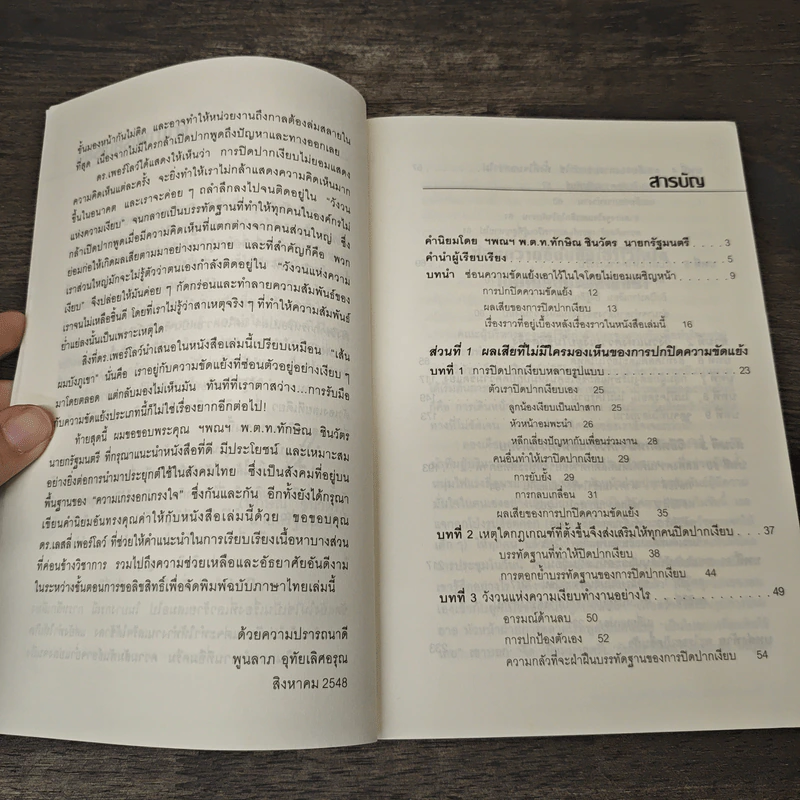 ชั้นมองหน้ากันไม่ติด และอาจทำให้หน่วยงานถึงกาลต้องล่มสลายใน
ที่สุด เนื่องจากไม่มีใครกล้าเปิดปากพูดถึงปัญหาและทางออกเลย
ดร.เพอร์โลว์ได้แสดงให้เห็นว่า การปิดปากเงียบไม่ยอมแสดง
ความคิดเห็นแต่ละครั้ง จะยิ่งทำให้เราไม่กล้าแสดงความคิดเห็นมาก
ขึ้นในอนาคต และเราจะค่อย ๆ ถลำลึกลงไปจนติดอยู่ใน "วังวน
แห่งความเงียบ" จนกลายเป็นบรรทัดฐานที่ทำให้ทุกคนในองค์กรไม่
กล้าเปิดปากพูดเมื่อมีความคิดเห็นที่แตกต่างจากคนส่วนใหญ่ ซึ่ง
ย่อมก่อให้เกิดผลเสียตามมาอย่างมากมาย และที่สำคัญก็คือ พวก
เราส่วนใหญ่มักจะไม่รู้ตัวว่าตนเองกำลังติดอยู่ใน "วังวนแห่งความ
เงียบ" จึงปล่อยให้มันค่อย ๆ กัดกร่อนและทำลายความสัมพันธ์ของ
เราจนไม่เหลือชิ้นดี โดยที่เราไม่รู้ว่าสาเหตุจริง ๆ ที่ทำให้ความสัมพันธ์
ย่ำแย่ลงนั้นเป็นเพราะเหตุใด
สิ่งที่ดร.เพอร์โลว์นำเสนอในหนังสือเล่มนี้เปรียบเหมือน "เส้น
ผมบังภูเขา" นั่นคือ เราอยู่กับความขัดแย้งที่ซ่อนตัวอยู่อย่างเงียบ ๆ
มาโดยตลอด แต่กลับมองไม่เห็นมัน ทันทีที่เราตาสว่าง...การรับมือ
กับความขัดแย้งประเภทนี้ก็ไม่ใช่เรื่องยากอีกต่อไป!
ท้ายสุดนี้ ผมขอขอบพระคุณ ฯพณฯ พ.ต.ท.ทักษิณ ชินวัตร
นายกรัฐมนตรี ที่กรุณาแนะนำหนังสือที่ดี มีประโยชน์ และเหมาะสม
อย่างยิ่งต่อการนำมาประยุกต์ใช้ในสังคมไทย ซึ่งเป็นสังคมที่อยู่บน
พื้นฐานของ "ความเกรงอกเกรงใจ" ซึ่งกันและกัน อีกทั้งยังได้กรุณา
เขียนคำนิยมอันทรงคุณค่าให้กับหนังสือเล่มนี้ด้วย ขอขอบคุณ
ดร.เลสลี่ เพอร์โลว์ ที่ช่วยให้คำแนะนำในการเรียบเรียงเนื้อหาบางส่วน
ที่ค่อนข้างวิชาการ รวมไปถึงความช่วยเหลือและอัธยาศัยอันดีงาม
ในระหว่างขั้นตอนการขอลิขสิทธิ์เพื่อจัดพิมพ์ฉบับภาษาไทยเล่มนี้
ด้วยความปรารถนาดี
พูนลาภ อุทัยเลิศอรุณ
สิงหาคม 2548
สารบัญ
คำนิยมโดย ฯพณฯ พ.ต.ท.ทักษิณ ชินวัตร นายกรัฐมนตรี .... 3
คำนำผู้เรียบเรียง .... 5
บทนำ ซ่อนความขัดแย้งเอาไว้ในใจโดยไม่ยอมเผชิญหน้า .... 9
การปกปิดความขัดแย้ง 12
ผลเสียของการปิดปากเงียบ 13
เรื่องราวที่อยู่เบื้องหลังเรื่องราวในหนังสือเล่มนี้ 16
ส่วนที่ 1 ผลเสียที่ไม่มีใครมองเห็นของการปกปิดความขัดแย้ง
บทที่ 1 การปิดปากเงียบหลายรูปแบบ .... 23
ตัวเราปิดปากเงียบเอง 25
ลูกน้องเงียบเป็นเป่าสาก 25
หัวหน้าอมพะนำ 26
หลีกเลี่ยงปัญหากับเพื่อนร่วมงาน 28
คนอื่นทำให้เราปิดปากเงียบ 29
การยับยั้ง 29
การกลบเกลื่อน 31
ผลเสียของการปกปิดความขัดแย้ง 35
บทที่ 2 เหตุใดกฎเกณฑ์ที่ตั้งขึ้นจึงส่งเสริมให้ทุกคนปิดปากเงียบ . 37
บรรทัดฐานที่ทำให้ปิดปากเงียบ 38
การตอกย้ำบรรทัดฐานของการปิดปากเงียบ 44
บทที่ 3 วังวนแห่งความเงียบทำงานอย่างไร .... 49
อารมณ์ด้านลบ 50
การปกป้องตัวเอง 52
ความกลัวที่จะฝ่าฝืนบรรทัดฐานของการปิดปากเงียบ 54